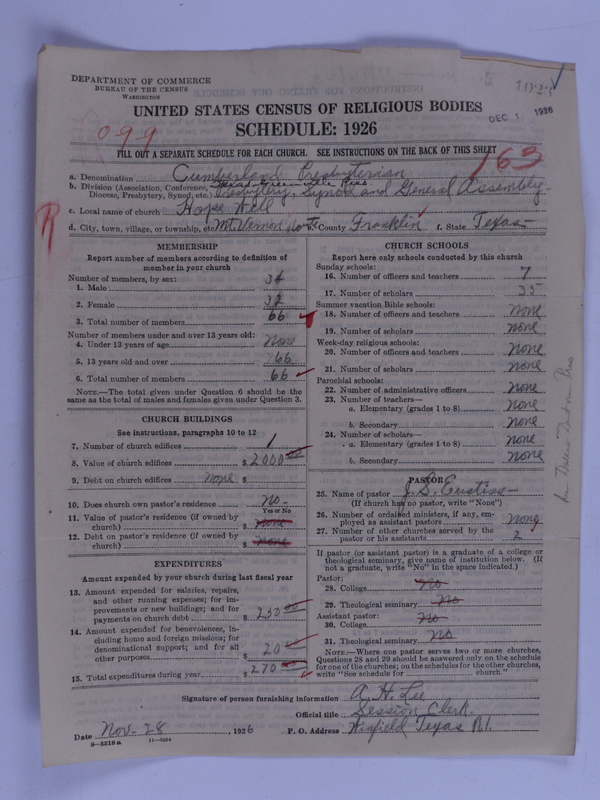 DEPARTMENT OF COMMERCE
BUREAU OF THE CENSUS
WASHINGTON
DEC 1 1926
UNITED STATES CENSUS OF RELIGIOUS BODIES
SCHEDULE: 1926
099
163
FILL OUT A SEPARATE SCHEDULE FOR EACH CHURCH. SEE INSTRUCTIONS ON THE BACK OF THIS SHEET
a. Denomination Cumberland Presbyterian
b. Division (Association, Conference, Diocese, Presbytery, Synod, etc.) Presbytery, Synod and General Assembly
c. Local name of church Hope Well
d. City, town, village, or township, etc. Mt Vernon e. County Franklin f. State Texas
R
MEMBERSHIP
Report number of members according to definition of
member in your church
Number of members, by sex:
1. Male 34
2. Female 32
3. Total number of members 66
Number of members under and over 13 years old:
4. Under 13 years of age None
5. 13 years old and over 66
6. Total number of members 66
NOTE.—The total given under Question 6 should be the
same as the total of males and females given under Question 3.
CHURCH BUILDINGS
See instructions, paragraphs 10 to 12
7. Number of church edifices 1
8. Value of church edifices $ 2000 00
9. Debt on church edifices none $
10. Does church own pastor's residence? no
Yes or No
11. Value of pastor's residence (if owned by
church) $ none
12. Debt on pastor's residence (if owned by
church) $ none
EXPENDITURES
Amount expended by your church during last fiscal year
13. Amount expended for salaries, repairs,
and other running expenses; for im-
provements or new buildings; and for
payments on church debt $ 250 00
14. Amount expended for benevolences, in-
cluding home and foreign missions; for
denominational support; and for all
other purposes $ 20
15. Total expenditures during year $ 270
CHURCH SCHOOLS
Report here only schools conducted by this church
Sunday schools:
16. Number of officers and teachers 7
17. Number of scholars 35
Summer vacation Bible schools:
18. Number of officers and teachers None
19. Number of scholars none
Week-day religious schools:
20. Number of officers and teachers None
21. Number of scholars None
Parochial schools:
22. Number of administrative officers None
23. Number of teachers—
a. Elementary (grades 1 to 8) None
b. Secondary None
24. Number of scholars—
a. Elementary (grades 1 to 8) None
b. Secondary None
PASTOR
25. Name of pastor J. S. Eustiss
(If church has no pastor, write "None")
26. Number of ordained ministers, if any, em-
ployed as assistant pastors None
27. Number of other churches served by the
pastor or his assistants 2
If pastor (or assistant pastor) is a graduate of a college or
theological seminary, give name of institution below. (If
not a graduate, write "No" in the space indicated.)
Pastor:
28. College No
29. Theological seminary No
Assistant pastor:
30. College No
31. Theological seminary No
NOTE.—Where one pastor serves two or more churches,
Questions 28 and 29 should be answered only on the schedule
for one of the churches; on the schedules for the other churches,
write "See schedule for church."
Signature of person furnishing information A. H. Lee
Official title Session Clerk
Date Nov-28, 1926 P. O. Address Winfield Texas R1.
8—5518a 11—9264